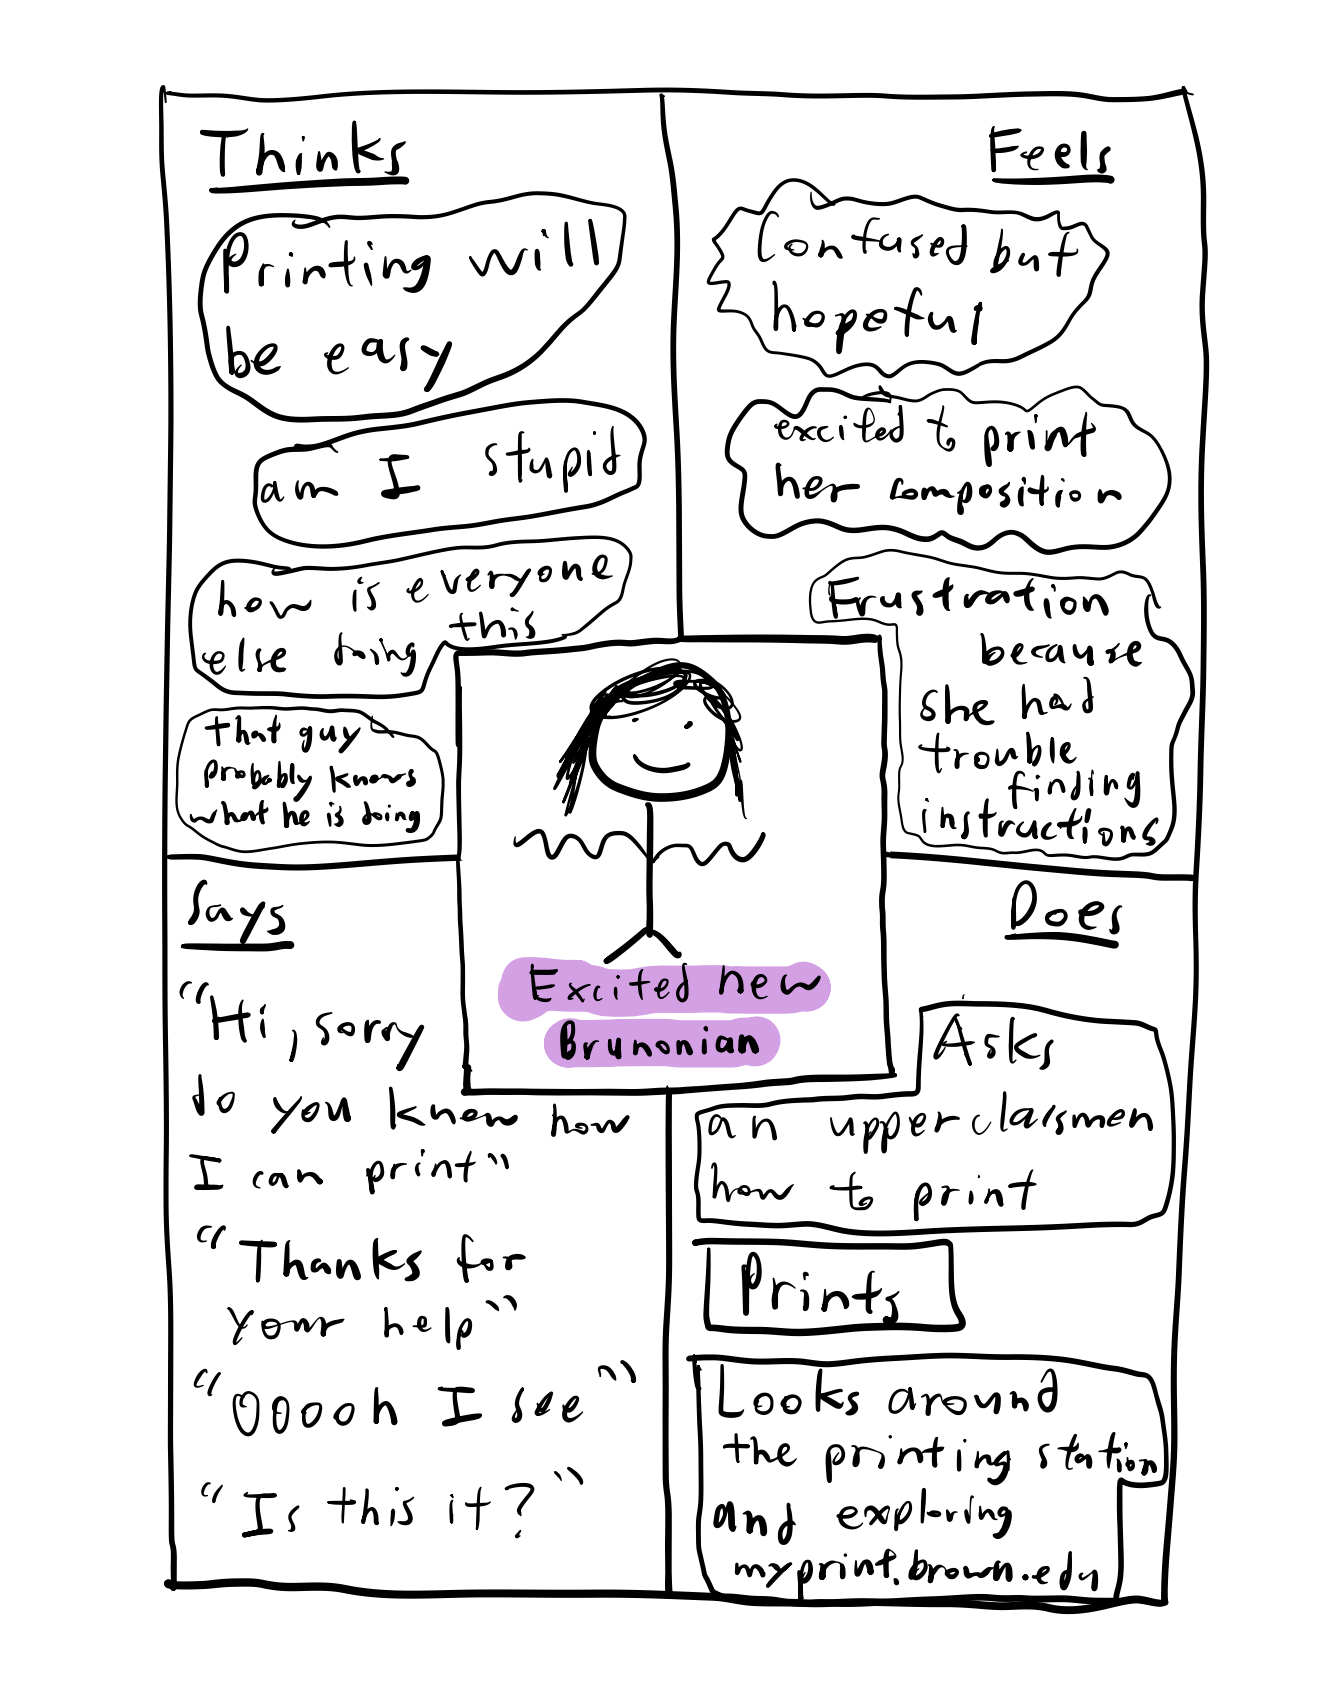 Thinks
Printing will
be easy
am I stupid
how is everyone
else doing this
that guy
probably knows
what he is doing
Feels
Confused but
hopeful
excited to print
her composition
Frustration
because
she had
trouble
finding
instructions
Excited new
Brunonian
Says
"Hi, sorry
do you know how
I can print"
"Thanks for
your help"
"Ooooh I see"
"Is this it?"
Does
Asks
an upperclassmen
how to print
Prints
Looks around
the printing station
and exploring
myprint.brown.edu